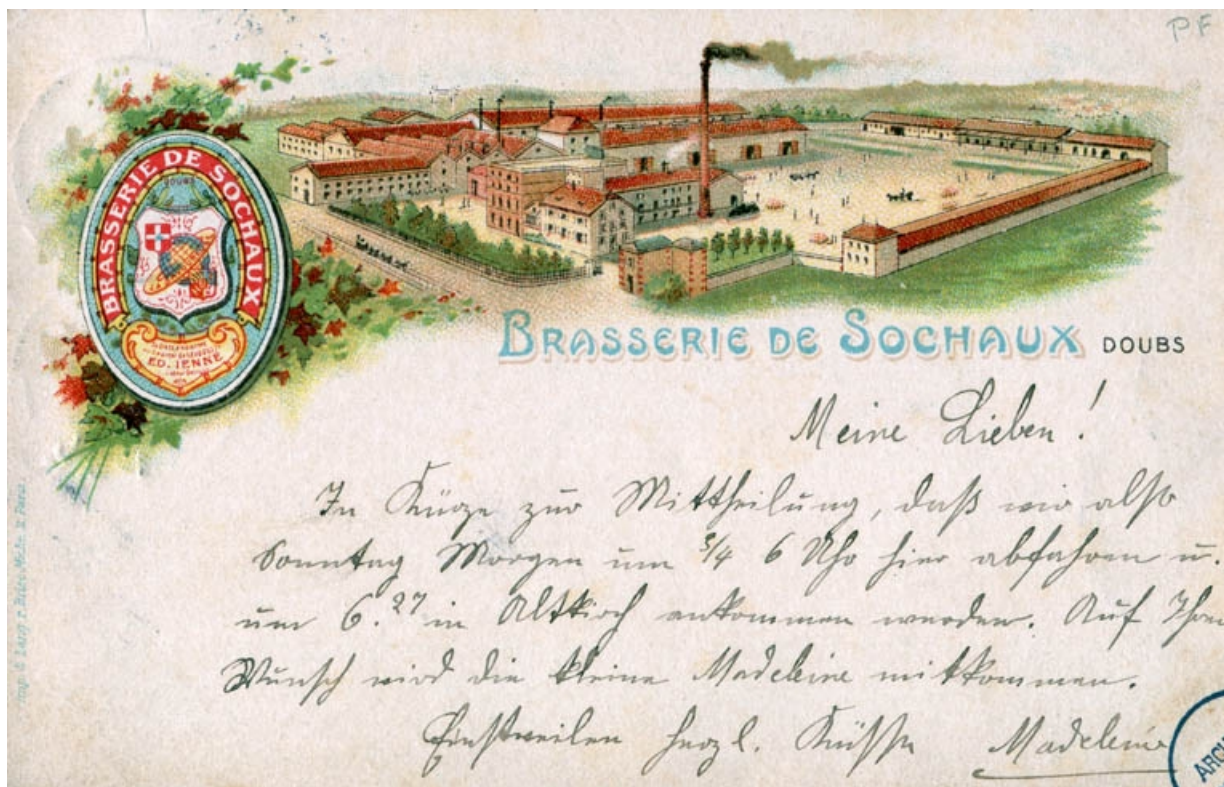 PF
BRASSERIE DE SOCHAUX
DOUBS
ED. IENNÉ
BRASSERIE DE SOCHAUX DOUBS
Meine Lieben!
In Kürze zur Mittheilung, daß wir also
Sonntag Morgen um 3/4 6 Uhr hier abfahren u.
um 6.27 in Altkirch ankommen werden. Auf Ihren
Wunsch wird die kleine Madeleine mitkommen.
Einstweilen herzl. Küsse Madeleine
ARCHI